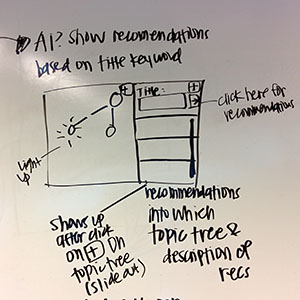 AI? Show recommendations
based on title keyword
Title:
+
+
click here for
recommendations
light
up
shows up
after click
on + on
topic tree
(slide out)
recommendations
into which
topic tree &
description of
recs